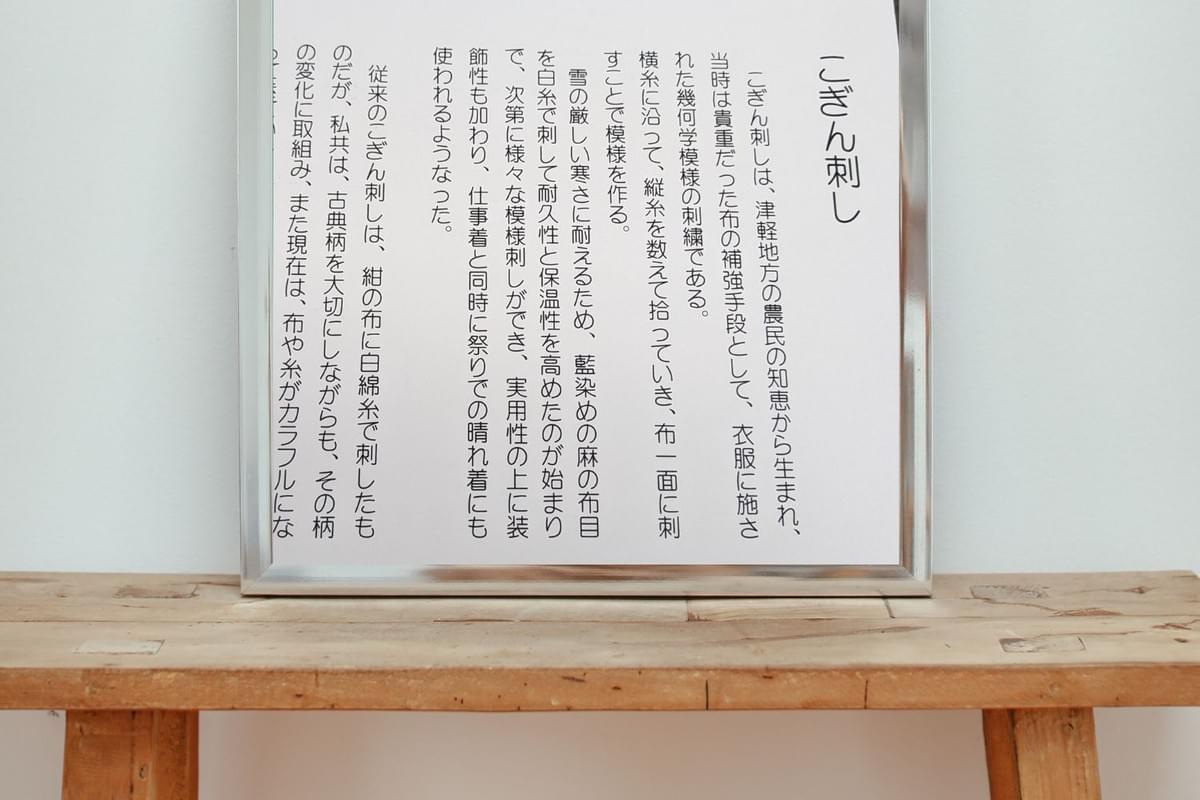 こぎん刺し
こぎん刺しは、津軽地方の農民の知恵から生まれ、
当時は貴重だった布の補強手段として、衣服に施さ
れた幾何学模様の刺繍である。
横糸に沿って、縦糸を数えて拾っていき、布一面に刺
すことで模様を作る。
雪の厳しい寒さに耐えるため、藍染めの麻の布目
を白糸で刺して耐久性と保温性を高めたのが始まり
で、次第に様々な模様刺しができ、実用性の上に装
飾性も加わり、仕事着と同時に祭りでの晴れ着にも
使われるようなった。
従来のこぎん刺しは、紺の布に白綿糸で刺したも
のだが、私共は、古典柄を大切にしながらも、その柄
の変化に取組み、また現在は、布や糸がカラフルにな